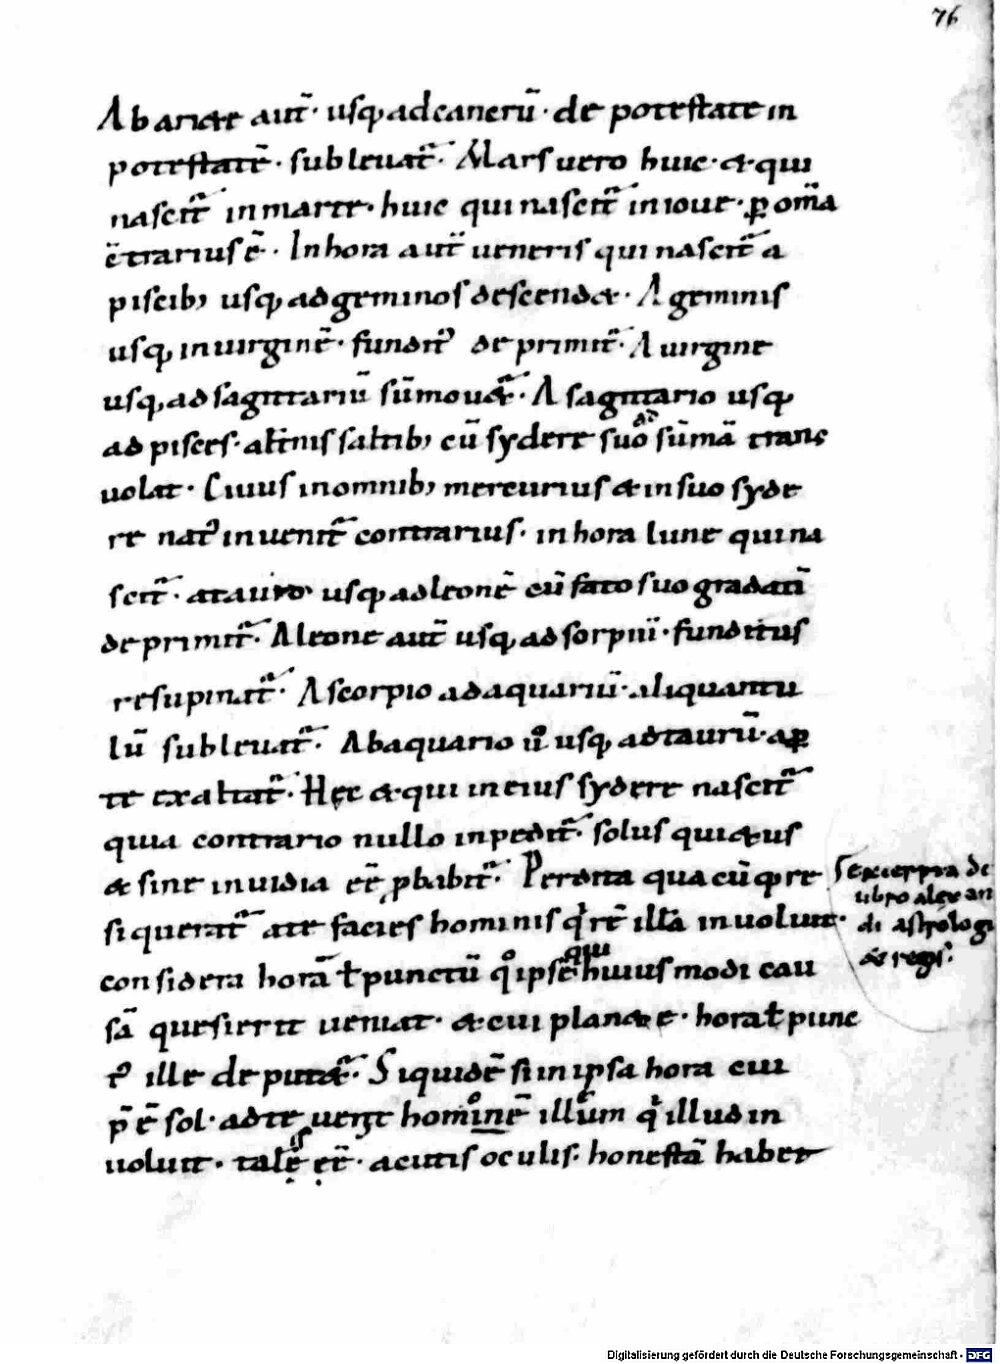 76
Ab ariete aut̄· usq; ad cancrū· de potestate in
potestatē· subleuat̄· Mars uero huic· & qui
nascit̄ in marte· huic qui nascit̄ in ioue· ꝑ om̄a
c̄trarius ē· In hora aut̄ ueneris qui nascit̄ a
piscib; usq; ad geminos descend&· A geminis
usq; in uirginē· fundit᾿ deprimit̄· A uirgine
usq; ad sagittariū sūmou&̄· A sagittario usq;
ad pisces· alt̄nis saltib; cū sydere suo ad sūmā trans
uolat· Cuius in omnib; mercurius & in suo syde
re nat᾿ inuenit̄ contrarius· in hora lune qui na
scit̄· a tauro usq; ad leonē cū fato suo gradatī
deprimit̄· A leone aut̄ usq; ad sorpiū· funditus
resupinat̄· A scorpio ad aquariū· aliquantu
lū subleuat̄· Ab aquario uͦ usq; ad taurū· aꝑ
te exaltat̄· Hęc & qui in eius sydere nascit̄
quia contrario nullo inpedit̄· solus qui&us
& sine inuidia eē ꝓbabit̄· Perdita quacūq; re
si querat̄ a te facies hominis q̄ rē illā inuoluit·
considera horā ł punctū qͦ ipsē qui huius modi cau
sā quesierit ueniat· & cui plan&e· hora ł punc
t᾿ ille deput&̄· Siquidē si in ipsa hora cui
p̄ ē sol· ad te uen̄t hominē illum q illud in
uoluit· talē eē· acutis oculis· honestā habet
Excerpta de
libro alexan
di astrologi
& regis·
Digitalisierung gefördert durch die Deutsche Forschungsgemeinschaft - DFG